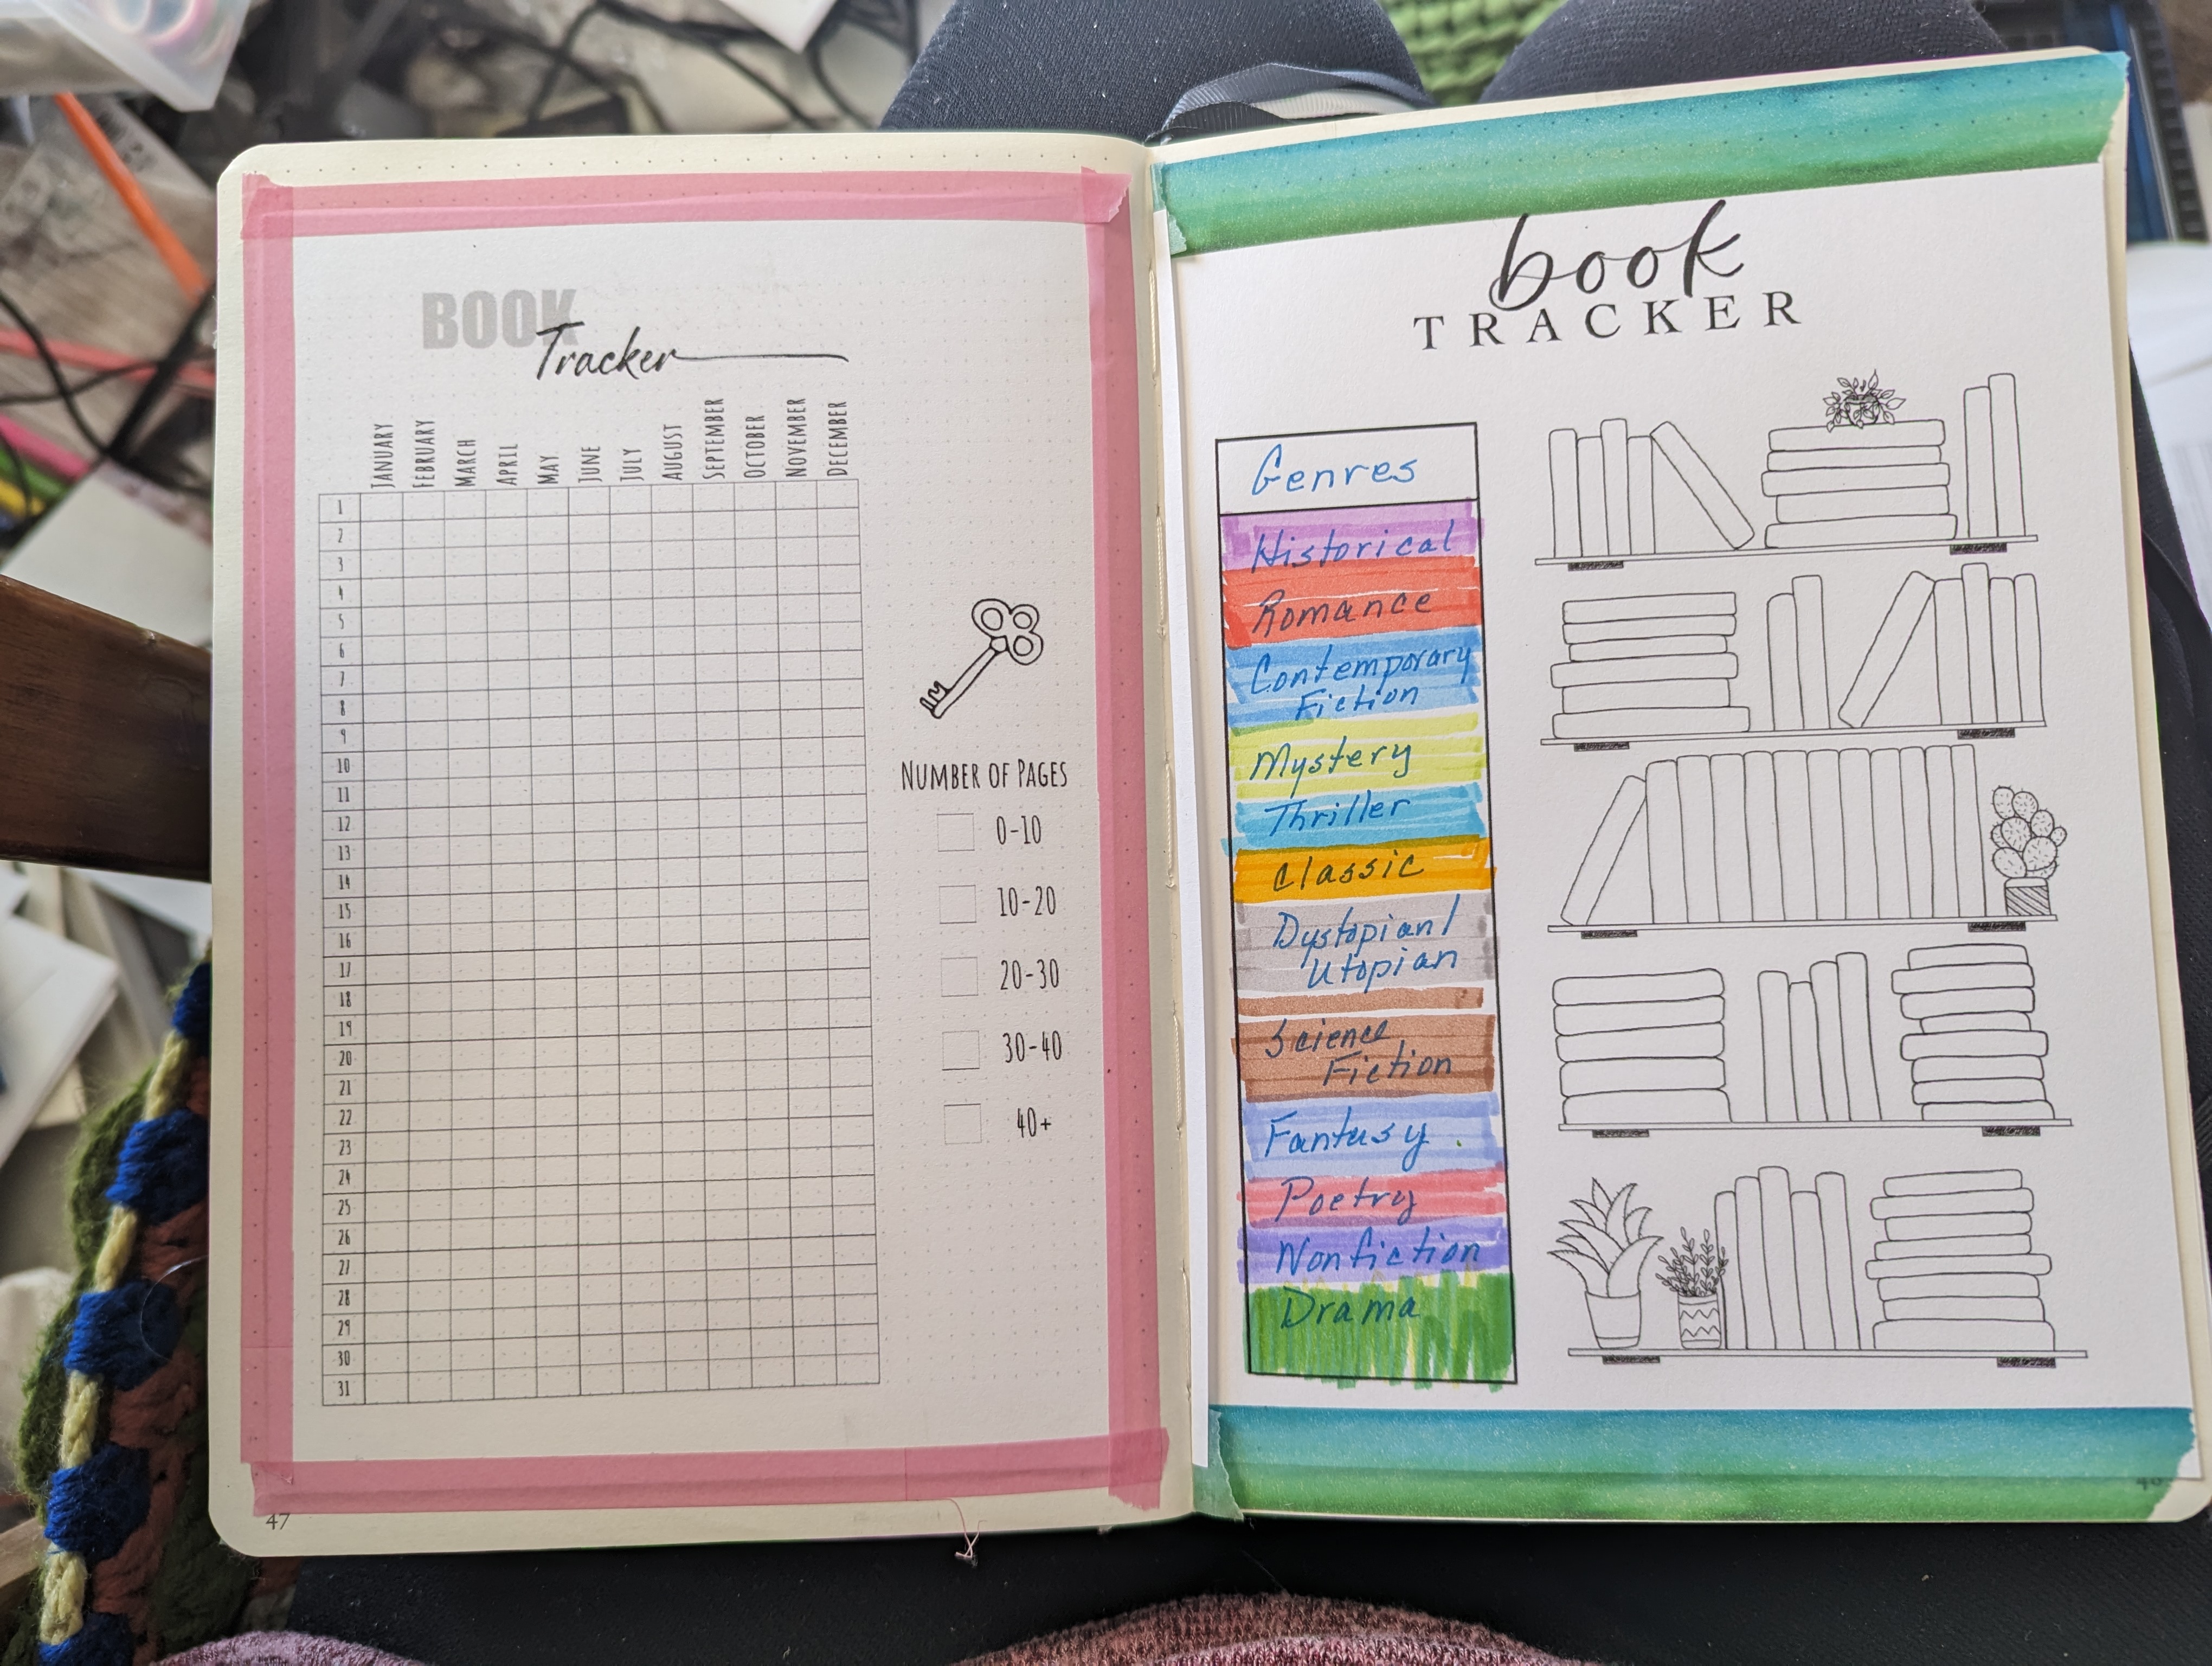 BOOK
Tracker
JANUARY FEBRUARY MARCH APRIL MAY JUNE JULY AUGUST SEPTEMBER OCTOBER NOVEMBER DECEMBER
1
2
3
4
5
6
7
8
9
10
11
12
13
14
15
16
17
18
19
20
21
22
23
24
25
26
27
28
29
30
31
NUMBER OF PAGES
0-10
10-20
20-30
30-40
40+
47
book
TRACKER
Genres
Historical
Romance
Contemporary
Fiction
Mystery
Thriller
Classic
Dystopian/
Utopian
Science
Fiction
Fantasy
Poetry
Nonfiction
Drama